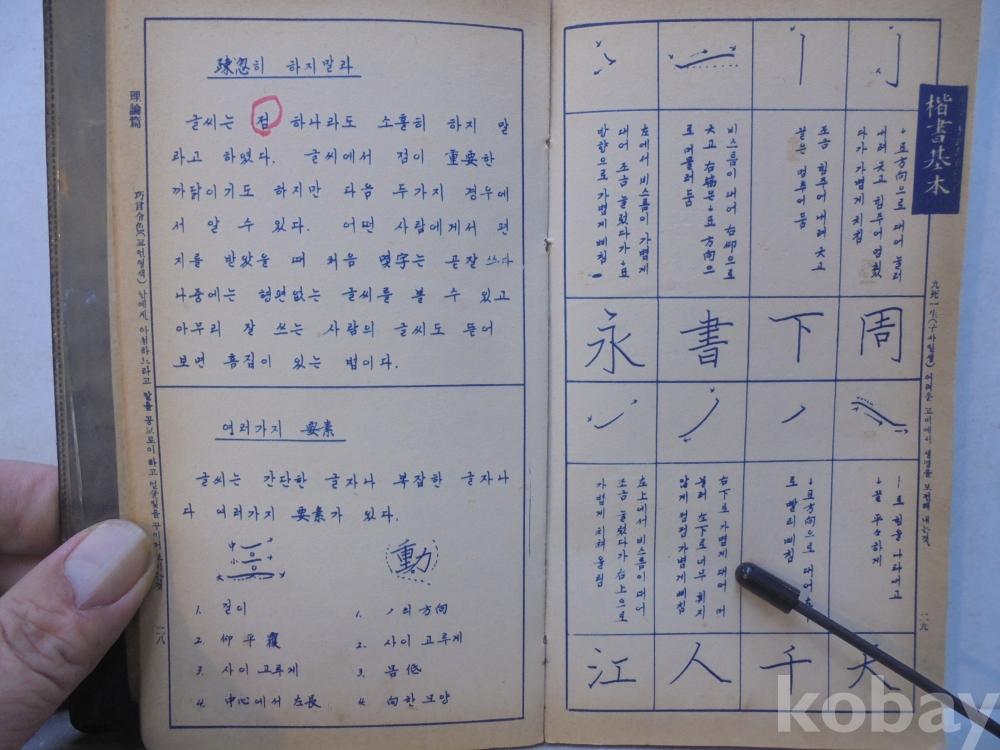 疎忽히 하지말라
글씨는 점 하나라도 소홀히 하지 말
라고 하였다. 글씨에서 점이 重要한
까닭이기도 하지만 다음 두가지 경우에
서 알 수 있다. 어떤 사람에게서 편
지를 받았을 때 처음 몇字는 곧잘 쓰다
나중에는 형편없는 글씨를 볼 수 있고
아무리 잘 쓰는 사람의 글씨도 뜯어
보면 흠집이 있는 법이다.
여러가지 要素
글씨는 간단한 글자나 복잡한 글자나
다 여러가지 要素가 있다.
中
小
大
動
1. 길이
2. 仰平覆
3. 사이 고루게
4. 中心에서 左長
1. 丿의 方向
2. 사이 고루게
3.  높低
4. 向한 모양
理論篇
巧言令色(교언영색) 남에게 아첨하느라고 말을 공교로이 하고
二八
楷書基本
九死一生(구사일생) 어려운 고비에서 생명을 보전해 내는것
二九
↓표方向으로 대어 눌러
내려 긋고 힘주어 멈췄
다가 가볍게 치침
조금 힘주어 내려 긋고
끝은 멈추어 둠
비스듬이 대어 右仰으로
긋고 右端은 ↓표 方向으
로 머물러 둠
左에서 비스듬이 가볍게
대어 조금 눌렀다가 ↓표
방향으로 가볍게 삐침
周
下
書
永
丨로 힘을 나타내고
↓끝 뚜우하게
↓표方向으로 대어
로 빨리 삐침
右下로 가볍게 대어
눌러 左下로 너무 휘지
않게 점점 가볍게 삐침
左上에서 비스듬이 대어
조금 눌렀다가 右上으로
가볍게 치쳐 올림
大
千
人
江
kobay